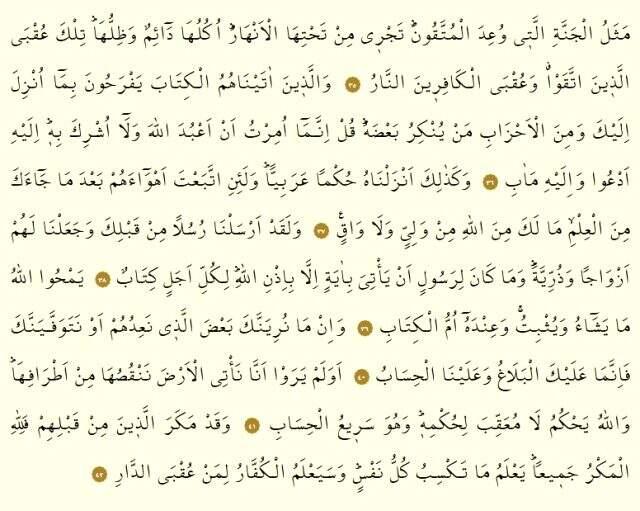 مَثَلُ الْجَنَّةِ الَّت۪ي وُعِدَ الْمُتَّقُونَۜ تَجْر۪ي مِنْ تَحْتِهَا الْاَنْهَارُۜ اُكُلُهَا دَٓائِمٌ وَظِلُّهَاۜ تِلْكَ عُقْبَى
الَّذ۪ينَ اتَّقَوْاۗ وَعُقْبَى الْكَافِر۪ينَ النَّارُ ﴿٣٥﴾ وَالَّذ۪ينَ اٰتَيْنَاهُمُ الْكِتَابَ يَفْرَحُونَ بِمَٓا اُنْزِلَ
اِلَيْكَ وَمِنَ الْاَحْزَابِ مَنْ يُنْكِرُ بَعْضَهُۜ قُلْ اِنَّمَٓا اُمِرْتُ اَنْ اَعْبُدَ اللّٰهَ وَلَٓا اُشْرِكَ بِه۪ۜ اِلَيْهِ
اَدْعُوا وَاِلَيْهِ مَاٰبِ ﴿٣٦﴾ وَكَذٰلِكَ اَنْزَلْنَاهُ حُكْمًا عَرَبِيًّاۜ وَلَئِنِ اتَّبَعْتَ اَهْوَٓاءَهُمْ بَعْدَ مَا جَٓاءَكَ
مِنَ الْعِلْمِۙ مَا لَكَ مِنَ اللّٰهِ مِنْ وَلِيٍّ وَلَا وَاقٍ۟ ﴿٣٧﴾ وَلَقَدْ اَرْسَلْنَا رُسُلًا مِنْ قَبْلِكَ وَجَعَلْنَا لَهُمْ
اَزْوَاجًا وَذُرِّيَّةًۜ وَمَا كَانَ لِرَسُولٍ اَنْ يَأْتِيَ بِاٰيَةٍ اِلَّا بِاِذْنِ اللّٰهِۜ لِكُلِّ اَجَلٍ كِتَابٌ ﴿٣٨﴾ يَمْحُوا اللّٰهُ
مَا يَشَٓاءُ وَيُثْبِتُۚ وَعِنْدَهُٓ اُمُّ الْكِتَابِ ﴿٣٩﴾ وَاِنْ مَا نُرِيَنَّكَ بَعْضَ الَّذ۪ي نَعِدُهُمْ اَوْ نَتَوَفَّيَنَّكَ
فَاِنَّمَا عَلَيْكَ الْبَلَاغُ وَعَلَيْنَا الْحِسَابُ ﴿٤٠﴾ اَوَلَمْ يَرَوْا اَنَّا نَأْتِي الْاَرْضَ نَنْقُصُهَا مِنْ اَطْرَافِهَاۜ
وَاللّٰهُ يَحْكُمُ لَا مُعَقِّبَ لِحُكْمِه۪ۜ وَهُوَ سَر۪يعُ الْحِسَابِ ﴿٤١﴾ وَقَدْ مَكَرَ الَّذ۪ينَ مِنْ قَبْلِهِمْ فَلِلّٰهِ
الْمَكْرُ جَم۪يعًاۜ يَعْلَمُ مَا تَكْسِبُ كُلُّ نَفْسٍۜ وَسَيَعْلَمُ الْكُفَّارُ لِمَنْ عُقْبَى الدَّارِ ﴿٤٢﴾